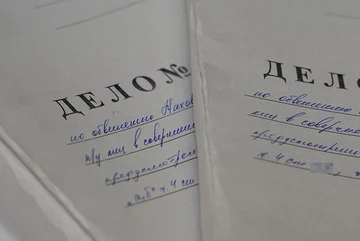 ДЕЛО №
по обвинению Нахов
гру лиц в соверше
предусмотрен
"а,б" ч. 4 ст
ДЕЛ
по обвинению
лиц в соверше
предусмотренн
ч. 4 ст